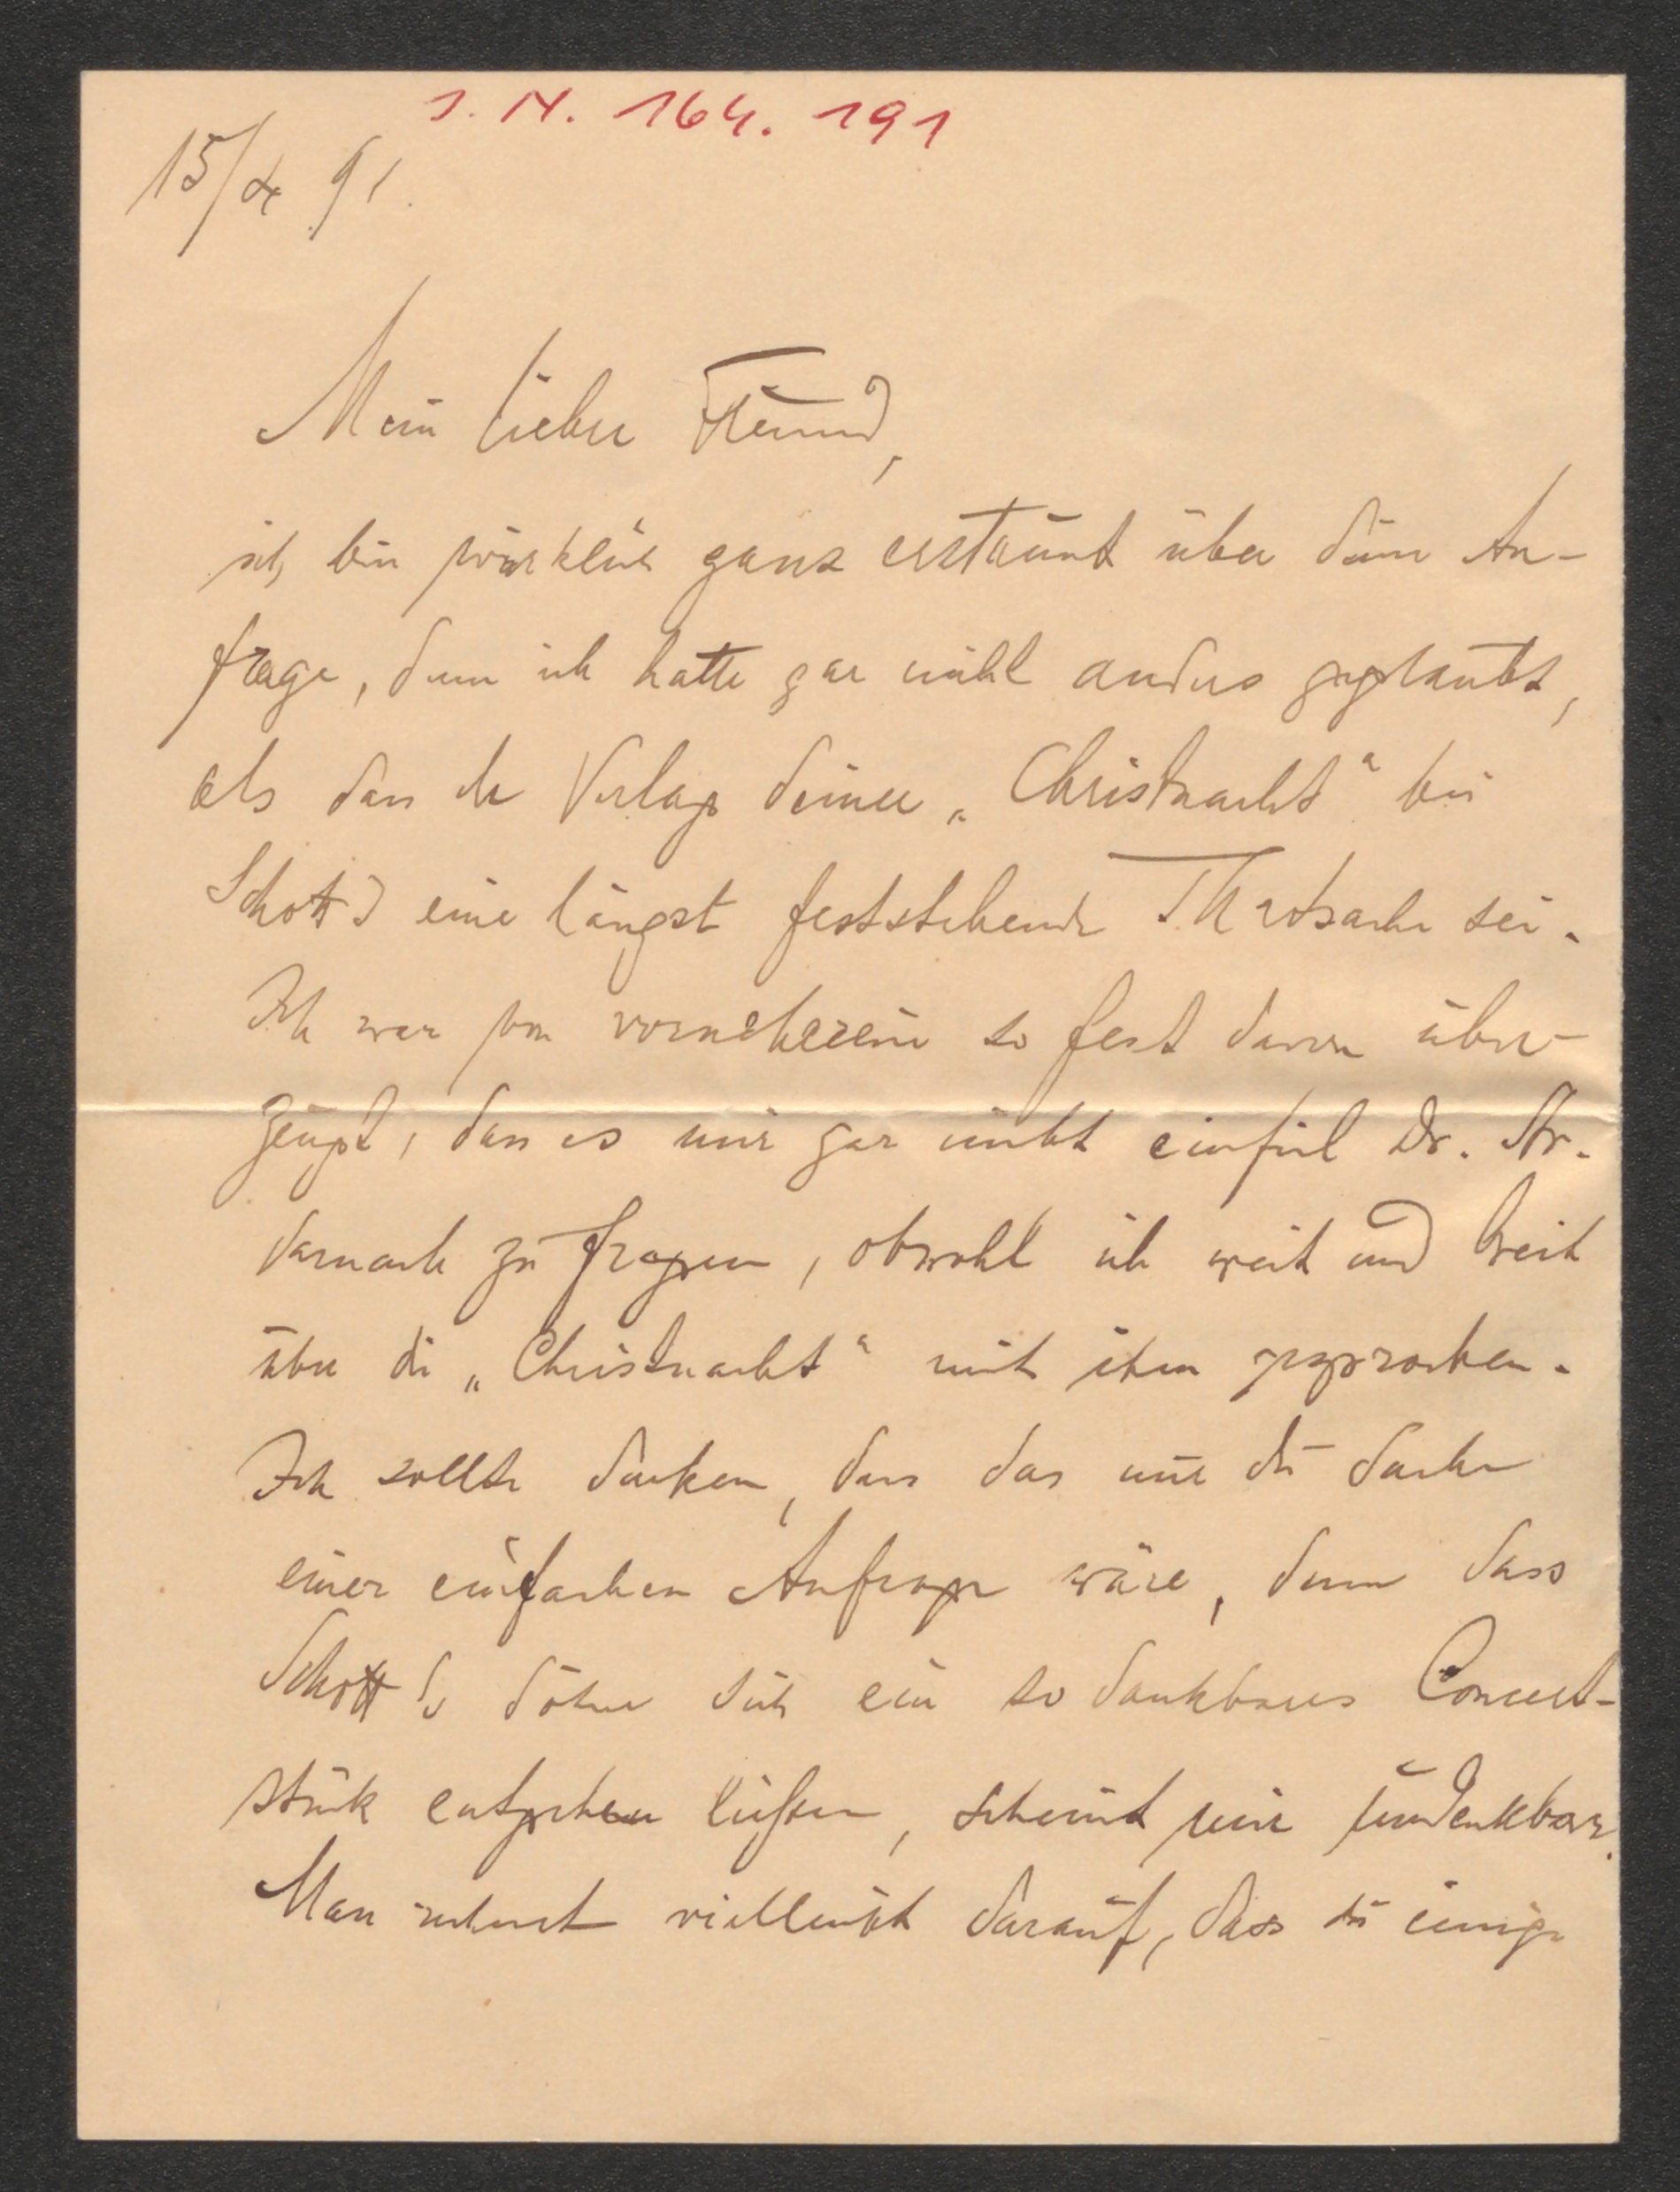 I. N. 164. 191
15/4 91.
Mein lieber Freund,
ich bin wirklich ganz erstaunt über deine An-
frage, denn ich hatte gar nicht anders geglaubt,
als dass der Verlag deiner „Christnacht“ bei
Schott's eine längst feststehende Thatsache sei.
Ich war von vorneherein so fest davon über-
zeugt, dass es mir gar nicht einfiel Dr. Str.
darnach zu fragen, obwohl ich weit und breit
über die „Christnacht“ mit ihm gesprochen.
Ich sollte denken, dass das nur die Sache
einer einfachen Anfrage wäre, denn dass
Schott's Söhne sich ein so dankbares Concert-
stück entgehen ließen, scheint mir undenkbar.
Man rechnet vielleicht darauf, dass du einige